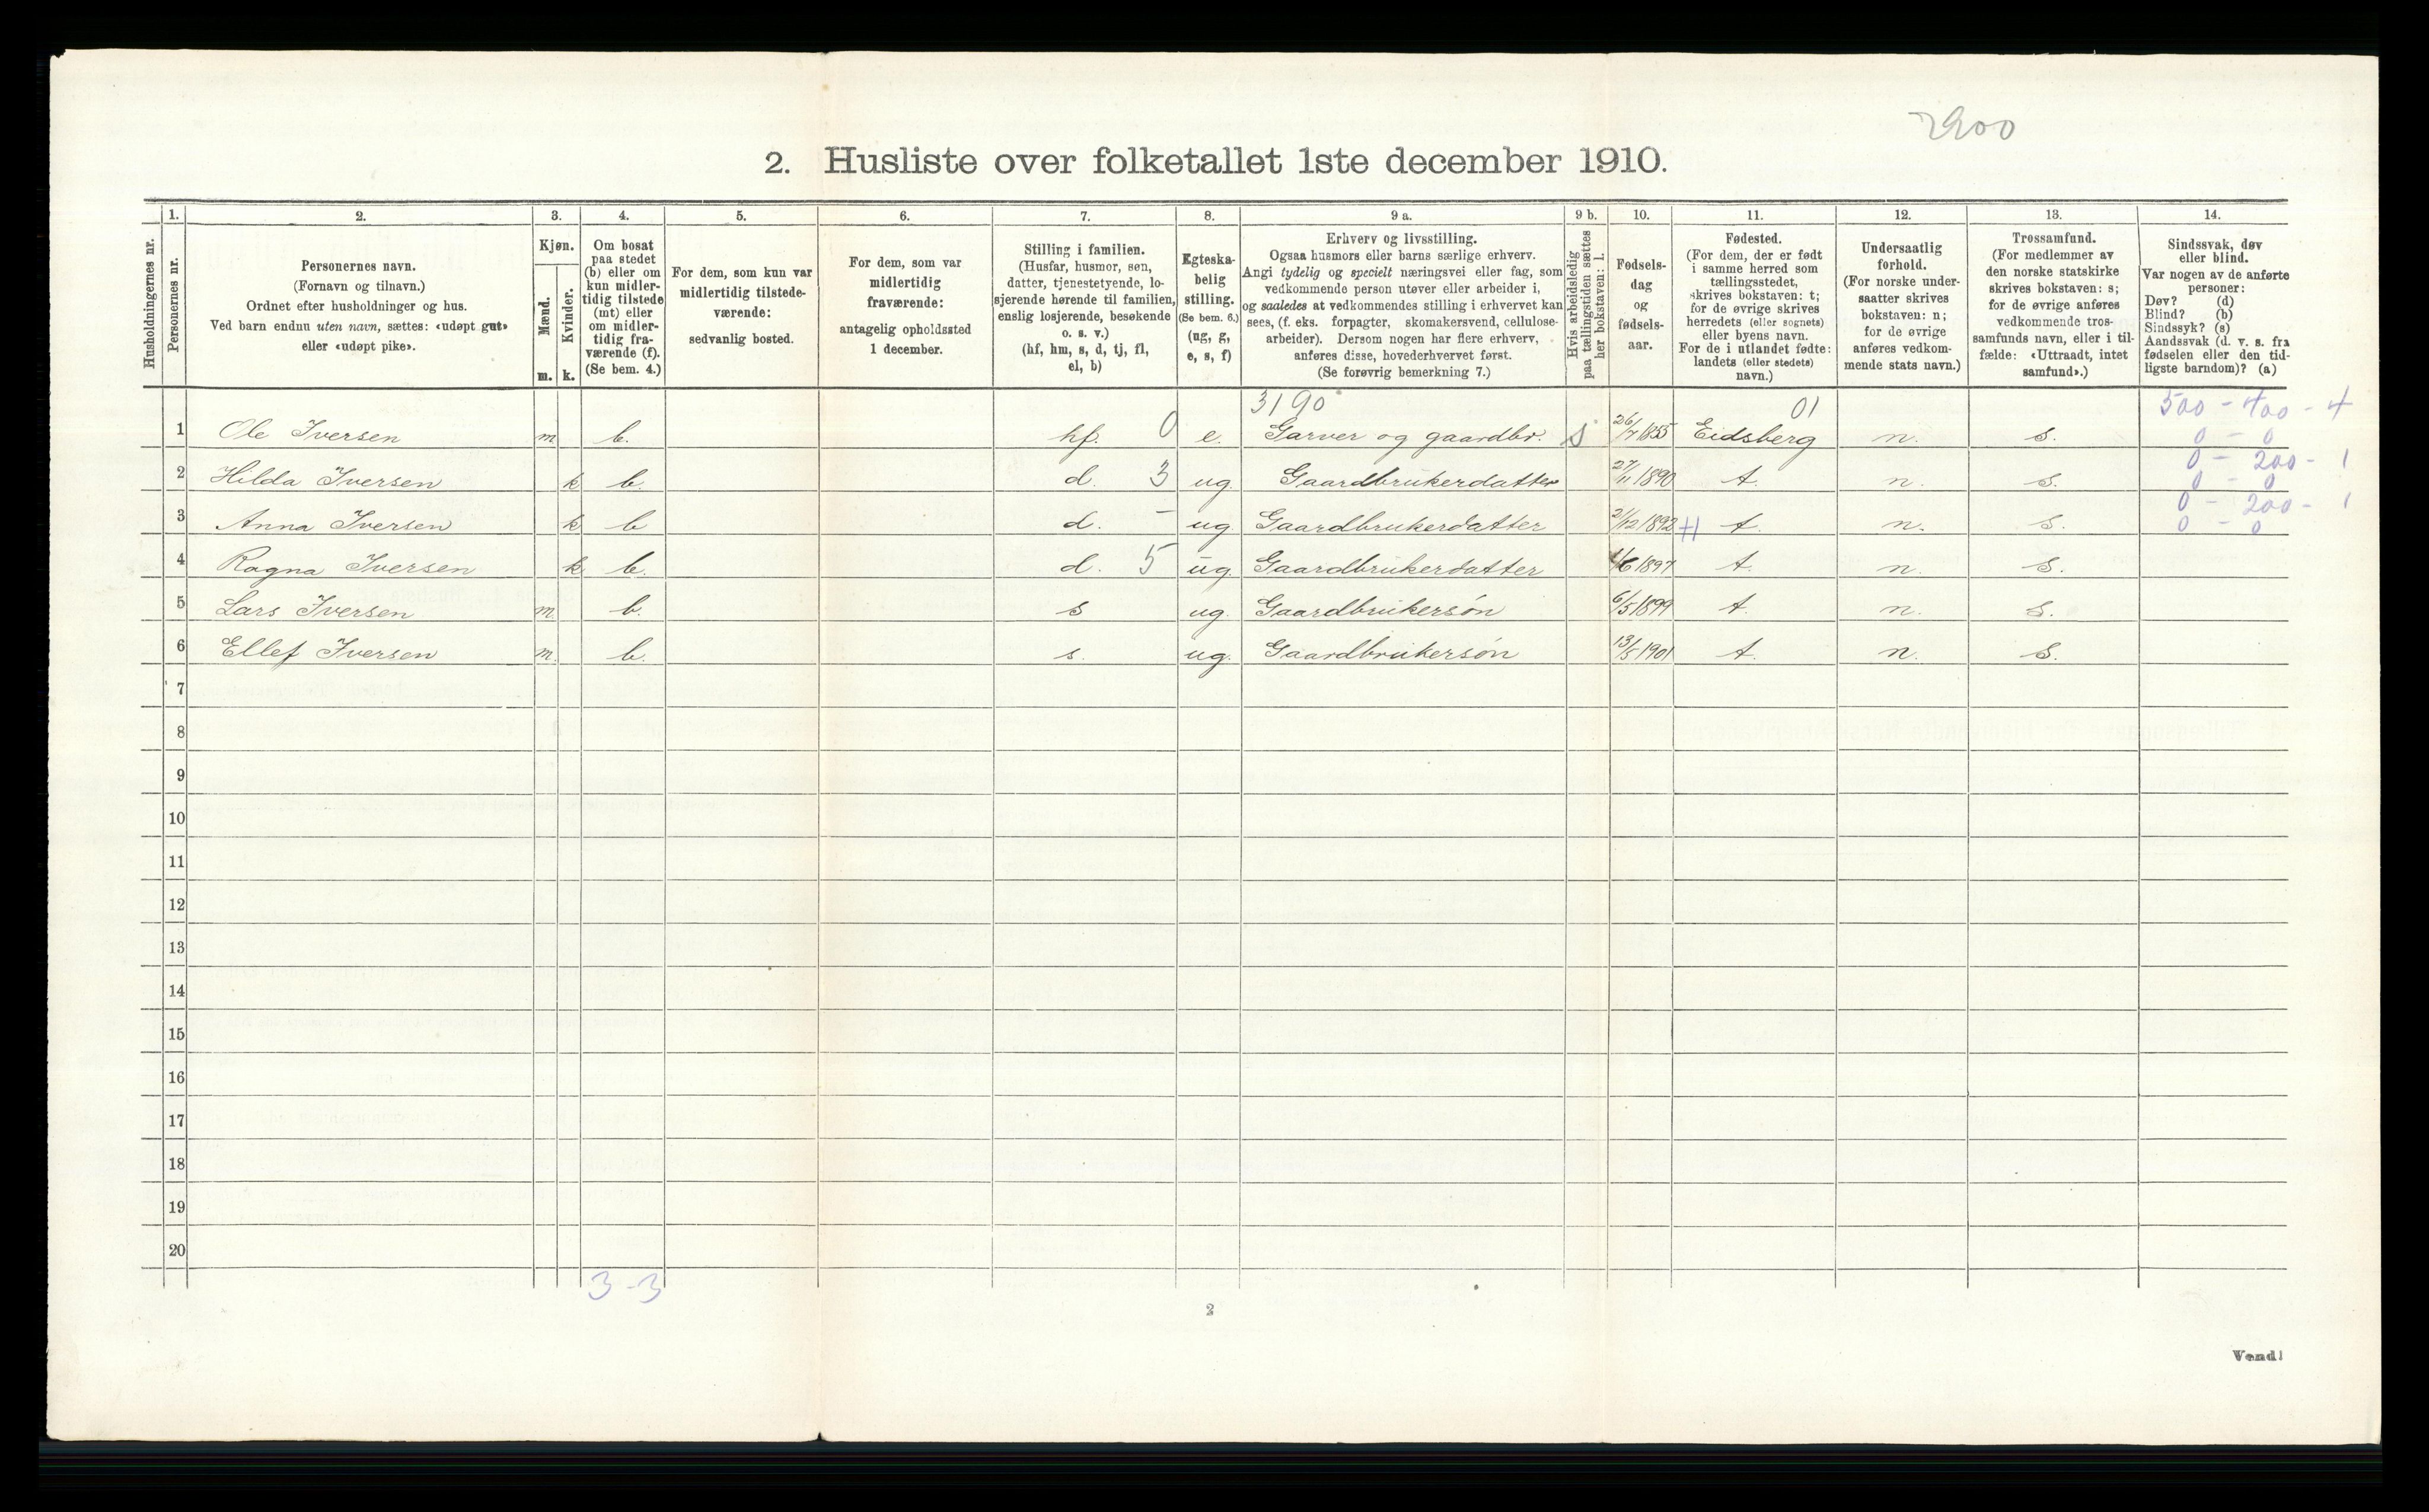 2900
2. Husliste over folketallet 1ste december 1910.
Husholdningernes nr.
1. Personernes nr.
2. Personernes navn. (Fornavn og tilnavn.) Ordnet efter husholdninger og hus. Ved barn endnu uten navn, sættes: «udøpt gut» eller «udøpt pike».
3. Kjøn. Mænd. m. Kvinder. k.
4. Om bosat paa stedet (b) eller om kun midler-tidig tilstede (mt) eller om midler-tidig fra-værende (f). (Se bem. 4.)
5. For dem, som kun var midlertidig tilstede-værende: sedvanlig bosted.
6. For dem, som var midlertidig fraværende: antagelig opholdssted 1 december.
7. Stilling i familien. (Husfar, husmor, søn, datter, tjenestetyende, lo-sjerende hørende til familien, enslig losjerende, besøkende o. s. v.) (hf, hm, s, d, tj, fl, el, b)
8. Egteska-belig stilling. (Se bem. 6.) (ug, g, e, s, f)
9 a. Erhverv og livsstilling. Ogsaa husmors eller barns særlige erhverv. Angi tydelig og specielt næringsvei eller fag, som vedkommende person utøver eller arbeider i, og saaledes at vedkommendes stilling i erhvervet kan sees, (f. eks. forpagter, skomakersvend, cellulose-arbeider). Dersom nogen har flere erhverv, anføres disse, hovederhvervet først. (Se forøvrig bemerkning 7.)
9 b. Hvis arbeidsledig paa tællingstiden sættes her bokstaven: l.
10. Fødsels-dag og fødsels-aar.
11. Fødested. (For dem, der er født i samme herred som tællingsstedet, skrives bokstaven: t; for de øvrige skrives herredets (eller sognets) eller byens navn. For de i utlandet fødte: landets (eller stedets) navn.)
12. Undersaatlig forhold. (For norske under-saatter skrives bokstaven: n; for de øvrige anføres vedkom-mende stats navn.)
13. Trossamfund. (For medlemmer av den norske statskirke skrives bokstaven: s; for de øvrige anføres vedkommende tros-samfunds navn, eller i til-fælde: «Uttraadt, intet samfund».)
14. Sindssvak, døv eller blind. Var nogen av de anførte personer: Døv? (d) Blind? (b) Sindssyk? (s) Aandssvak (d. v. s. fra fødselen eller den tid-ligste barndom)? (a)
3190 01 500 - 400 - 4
1 Ole Iversen m. b. hf. 0 e. Garver og gaardbr. s 26/7 1855 Eidsberg n. s. 0 - 0
0 - 200 - 1
2 Hilda Iversen k b. d. 3 ug. Gaardbrukerdatter 27/11 1890 t. n. s. 0 - 0
0 - 200 - 1
3 Anna Iversen k b d. - ug. Gaardbrukerdatter 2/12 1892 t. n. s. 0 - 0
4 Ragna Iversen k b. d. 5 ug. Gaardbrukerdatter 1897 t. n. s.
5 Lars Iversen m. b. s ug. Gaardbrukersøn 6/5 1899 t. n. s.
6 Ellef Iversen m. b. s. ug. Gaardbrukersøn 13/5 1901 t. n. s.
7
8
9
10
11
12
13
14
15
16
17
18
19
20
3 - 3
2
Vend!